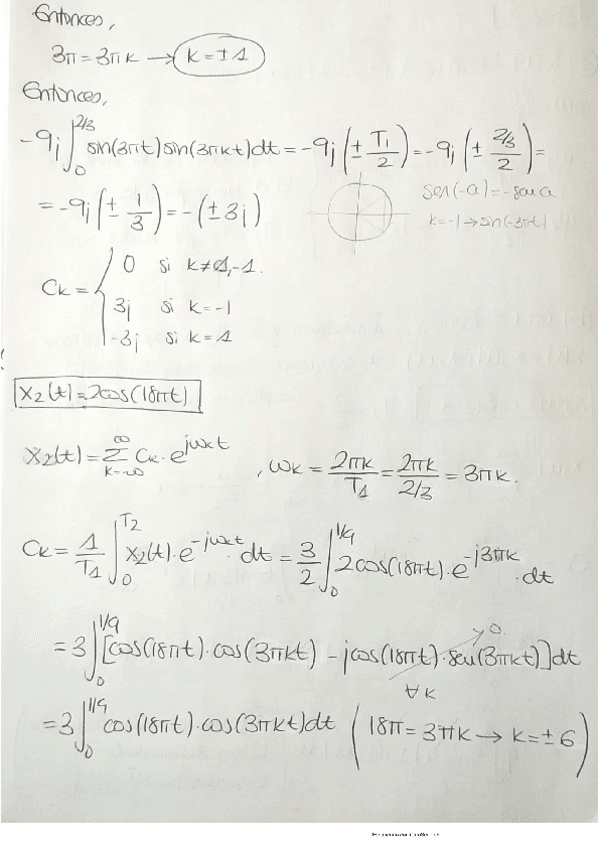 Entonces,
3π = 3πk → k = ±1
Entonces,
-9j ∫₀^{2/3} sin(3πt) sin(3πkt) dt = -9j (± T₁/2) = -9j (± (2/3)/2) =
= -9j (± 1/3) = -(±3j)
sen(-a) = -sen a
k = -1 → sin(-3πt)
Ck = { 0 si k ≠ 1, -1.
3j si k = -1
-3j si k = 1
x₂(t) = 2cos(18πt)
x₂(t) = Σ_{k=-∞}^{∞} Ck · e^{jωkt} , ωk = 2πk/T₁ = 2πk/(2/3) = 3πk.
Ck = 1/T₁ ∫₀^{T₂} x₂(t) · e^{-jωkt} · dt = 3/2 ∫₀^{1/9} 2cos(18πt) · e^{-j3πk} · dt
= 3 ∫₀^{1/9} [cos(18πt) · cos(3πkt) - jcos(18πt) · sen(3πkt)] dt
0.
∀k
= 3 ∫₀^{1/9} cos(18πt) · cos(3πkt) dt (18π = 3πk → k = ±6)